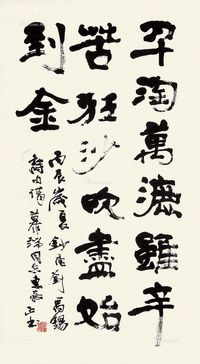 千淘萬漉雖辛
苦狂沙吹盡始
到金
丙辰歲夏鈔唐劉禹錫
詩句 同志